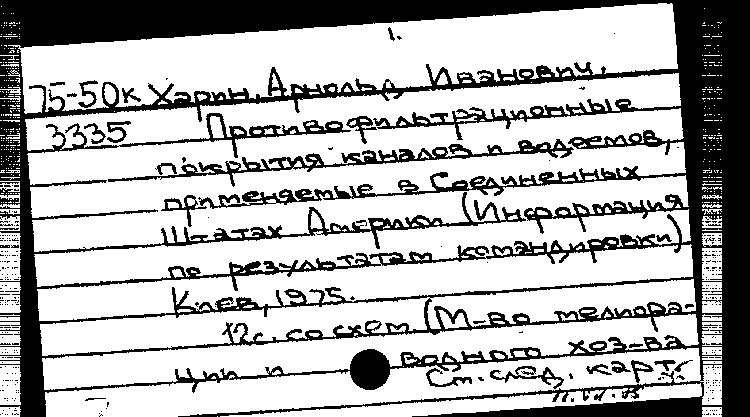 1.
75-50к Харин, Арнольд Иванович.
3335 Противофильтрационные
покрытия каналов и водоемов,
применяемые в Соединенных
Штатах Америки (Информация
по результатам командировки)
Киев, 1975.
12с. со схем. (М-во мелиора-
ции и водного хоз-ва
См. след. карт.